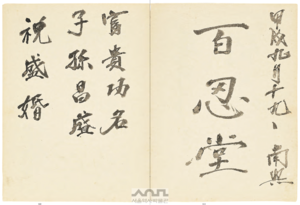 甲戌九月十九日 南熙
百忍堂
富貴功名
子孫昌盛
祝盛婚